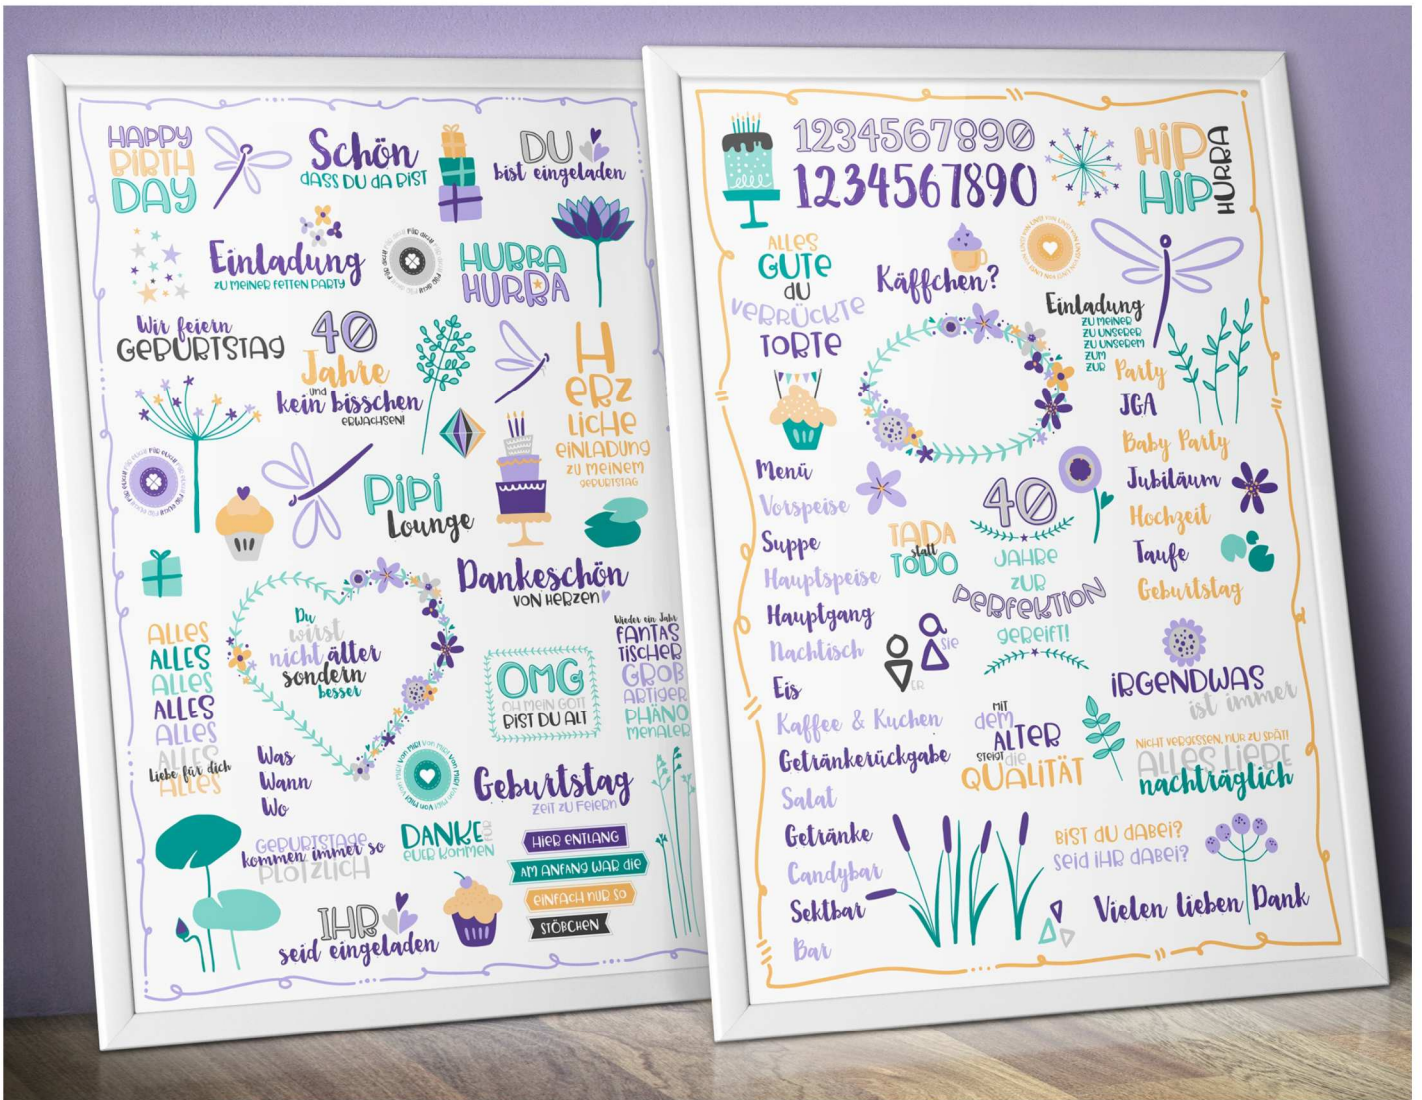 HAPPY
BIRTH
DAY
Schön
DASS DU DA BIST
DU
bist eingeladen
Einladung
ZU MEINER FETTEN PARTY
HURRA
HURRA
Wir feiern
GEBURTSTAG
40
Jahre
und
kein bisschen
ERWACHSEN!
H
ERZ
LICHE
EINLADUNG
ZU MEINEM
GEBURTSTAG
PIPI
Lounge
Dankeschön
VON HERZEN
ALLES
ALLES
ALLES
ALLES
ALLES
ALLES
Liebe für dich
ALLES
Du
wirst
nicht älter
sondern
besser
OMG
OH MEIN GOTT
BIST DU ALT
Wieder ein Jahr
FANTAS
TISCHER
GROß
ARTIGER
PHÄNO
MENALER
Was
Wann
Wo
Geburtstag
ZEIT ZU FEIERN
GEBURTSTAGE
kommen immer so
PLÖTZLICH
DANKE FÜR
EUER KOMMEN
HIER ENTLANG
AM ANFANG WAR DIE
EINFACH NUR SO
STÖBCHEN
IHR
seid eingeladen
1234567890
1234567890
HIP
HIP
HURRA
ALLES
GUTE
DU
VERRÜCKTE
TORTE
Käffchen?
Einladung
ZU MEINER
ZU UNSERER
ZU UNSEREM
ZUM
ZUR
Party
JGA
Baby Party
Jubiläum
Hochzeit
Taufe
Geburtstag
Menü
Vorspeise
Suppe
Hauptspeise
Hauptgang
Nachtisch
Eis
Kaffee & Kuchen
Getränkerückgabe
Salat
Getränke
Candybar
Sektbar
Bar
TADA
statt
TODO
40
JAHRE
ZUR
PERFEKTION
GEREIFT!
SIE
ER
IRGENDWAS
ist immer
MIT
DEM
ALTER
STEIGT DIE
QUALITÄT
NICHT VERGESSEN, NUR ZU SPÄT!
ALLES LIEBE
nachträglich
BIST DU DABEI?
SEID IHR DABEI?
Vielen lieben Dank